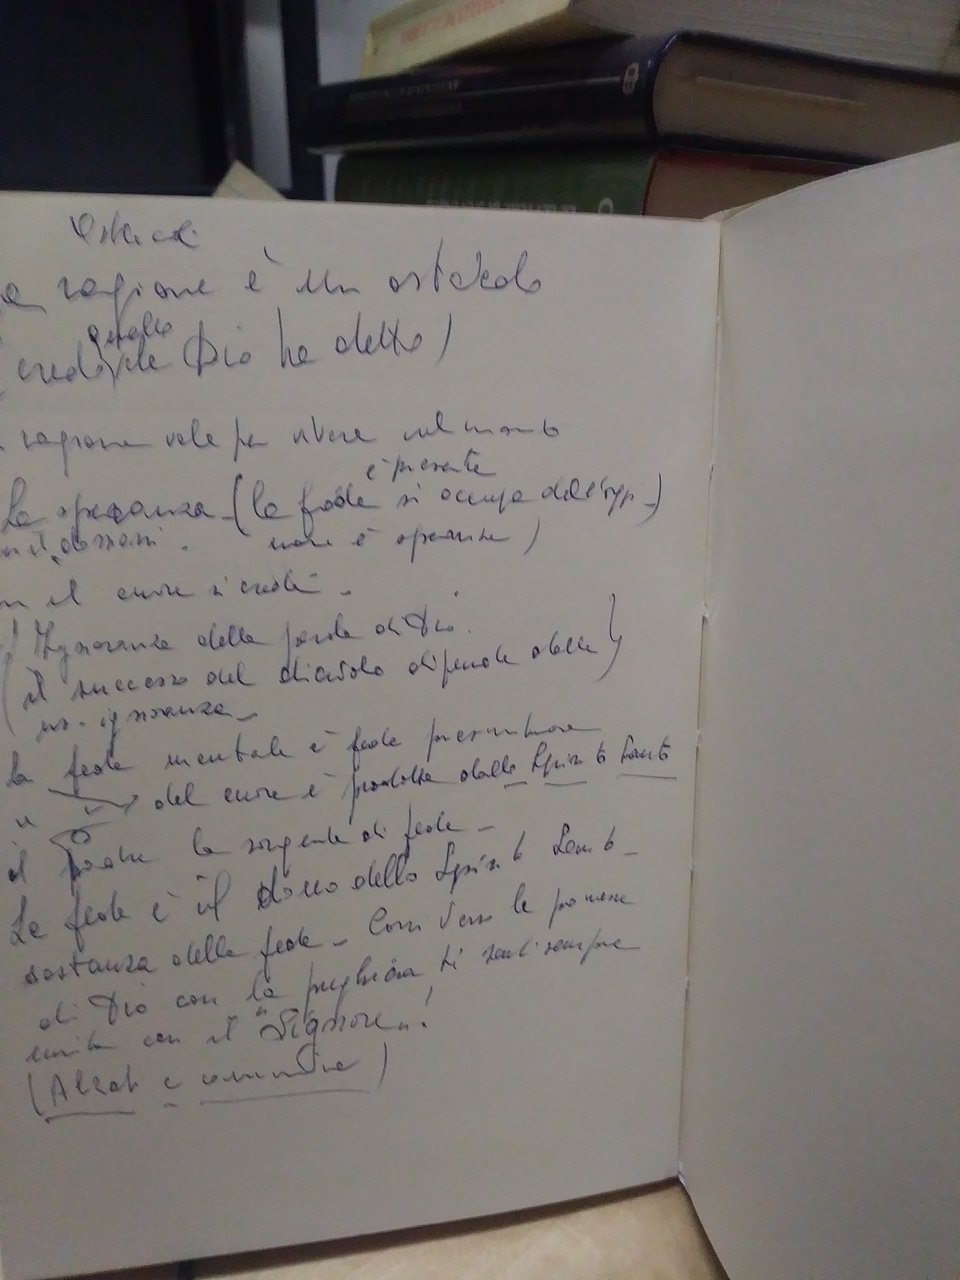 Ostacoli
ragione è un ostacolo
quello
che Dio ha detto)
ragione vale per vivere nel mondo
è presente
La speranza - (la fede si occupa dell'oggi -)
domani. non è speranza)
il cuore si crede -
Ignoranza della parola di Dio.
(il successo del diavolo dipende dalla)
ns. ignoranza -
La fede mentale è fede
" " del cuore è prodotta dallo Spirito Santo
il Padre la sorgente di fede -
La fede è il dono dello Spirito Santo -
sostanza della fede - la
di Dio con la preghiera ti senti sempre
unita con il "Signore"!
(Alzati e cammina)